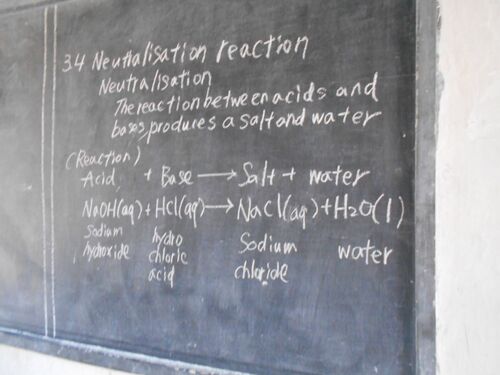 3.4 Neutralisation reaction
Neutralisation
The reaction between acids and
bases, produces a salt and water
(Reaction)
Acid + Base → Salt + water
NaOH(aq) + HCl(aq) → NaCl(aq) + H2O(l)
Sodium hydro Sodium water
hydroxide chloric chloride
acid